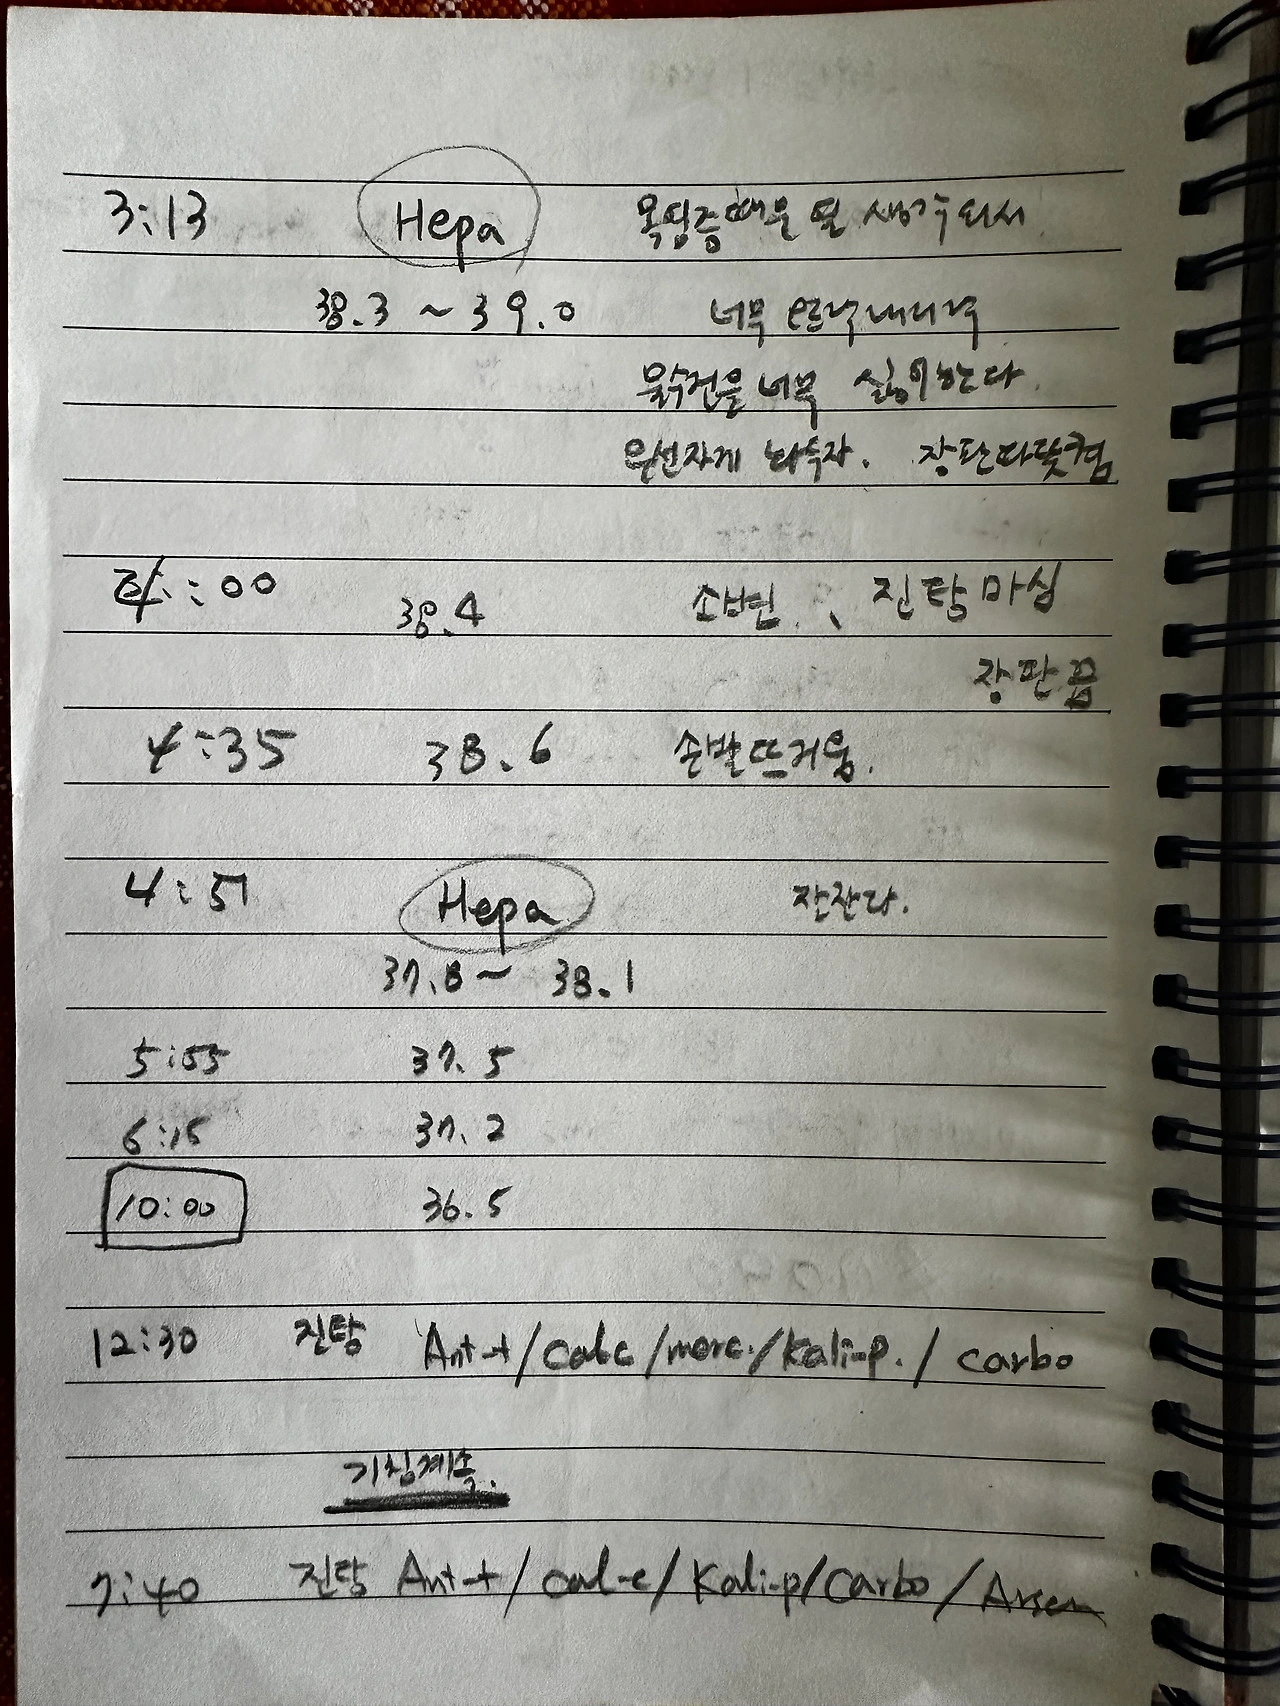 3:13 Hepa 때문 열
38.3 ~ 39.0 너무
물수건을 너무 싫어한다.
장판따뜻켬
4:00 38.4 소변, 진탕마심
장판끔
4:35 38.6 손발뜨거움.
4:51 Hepa 잔잔다.
37.8 ~ 38.1
5:55 37.5
6:15 37.2
10:00 36.5
12:30 진탕 Ant-t/calc/merc./Kali-p./carbo
기침계속.
7:40 진탕 Ant-t/cal-c/Kali-p/Carbo/Arsen